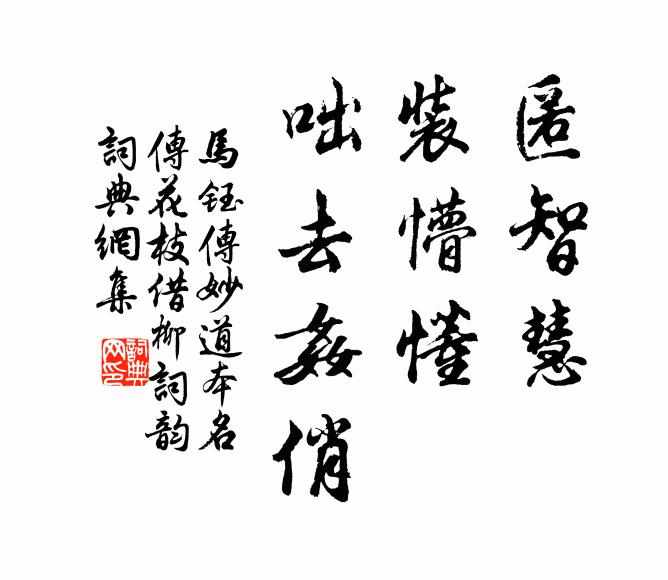 匿智慧
裝懵懂
咄去姦俏
馬鈺傳妙道本名
傳花枝借柳詞韵
詞典網集
詞典網印